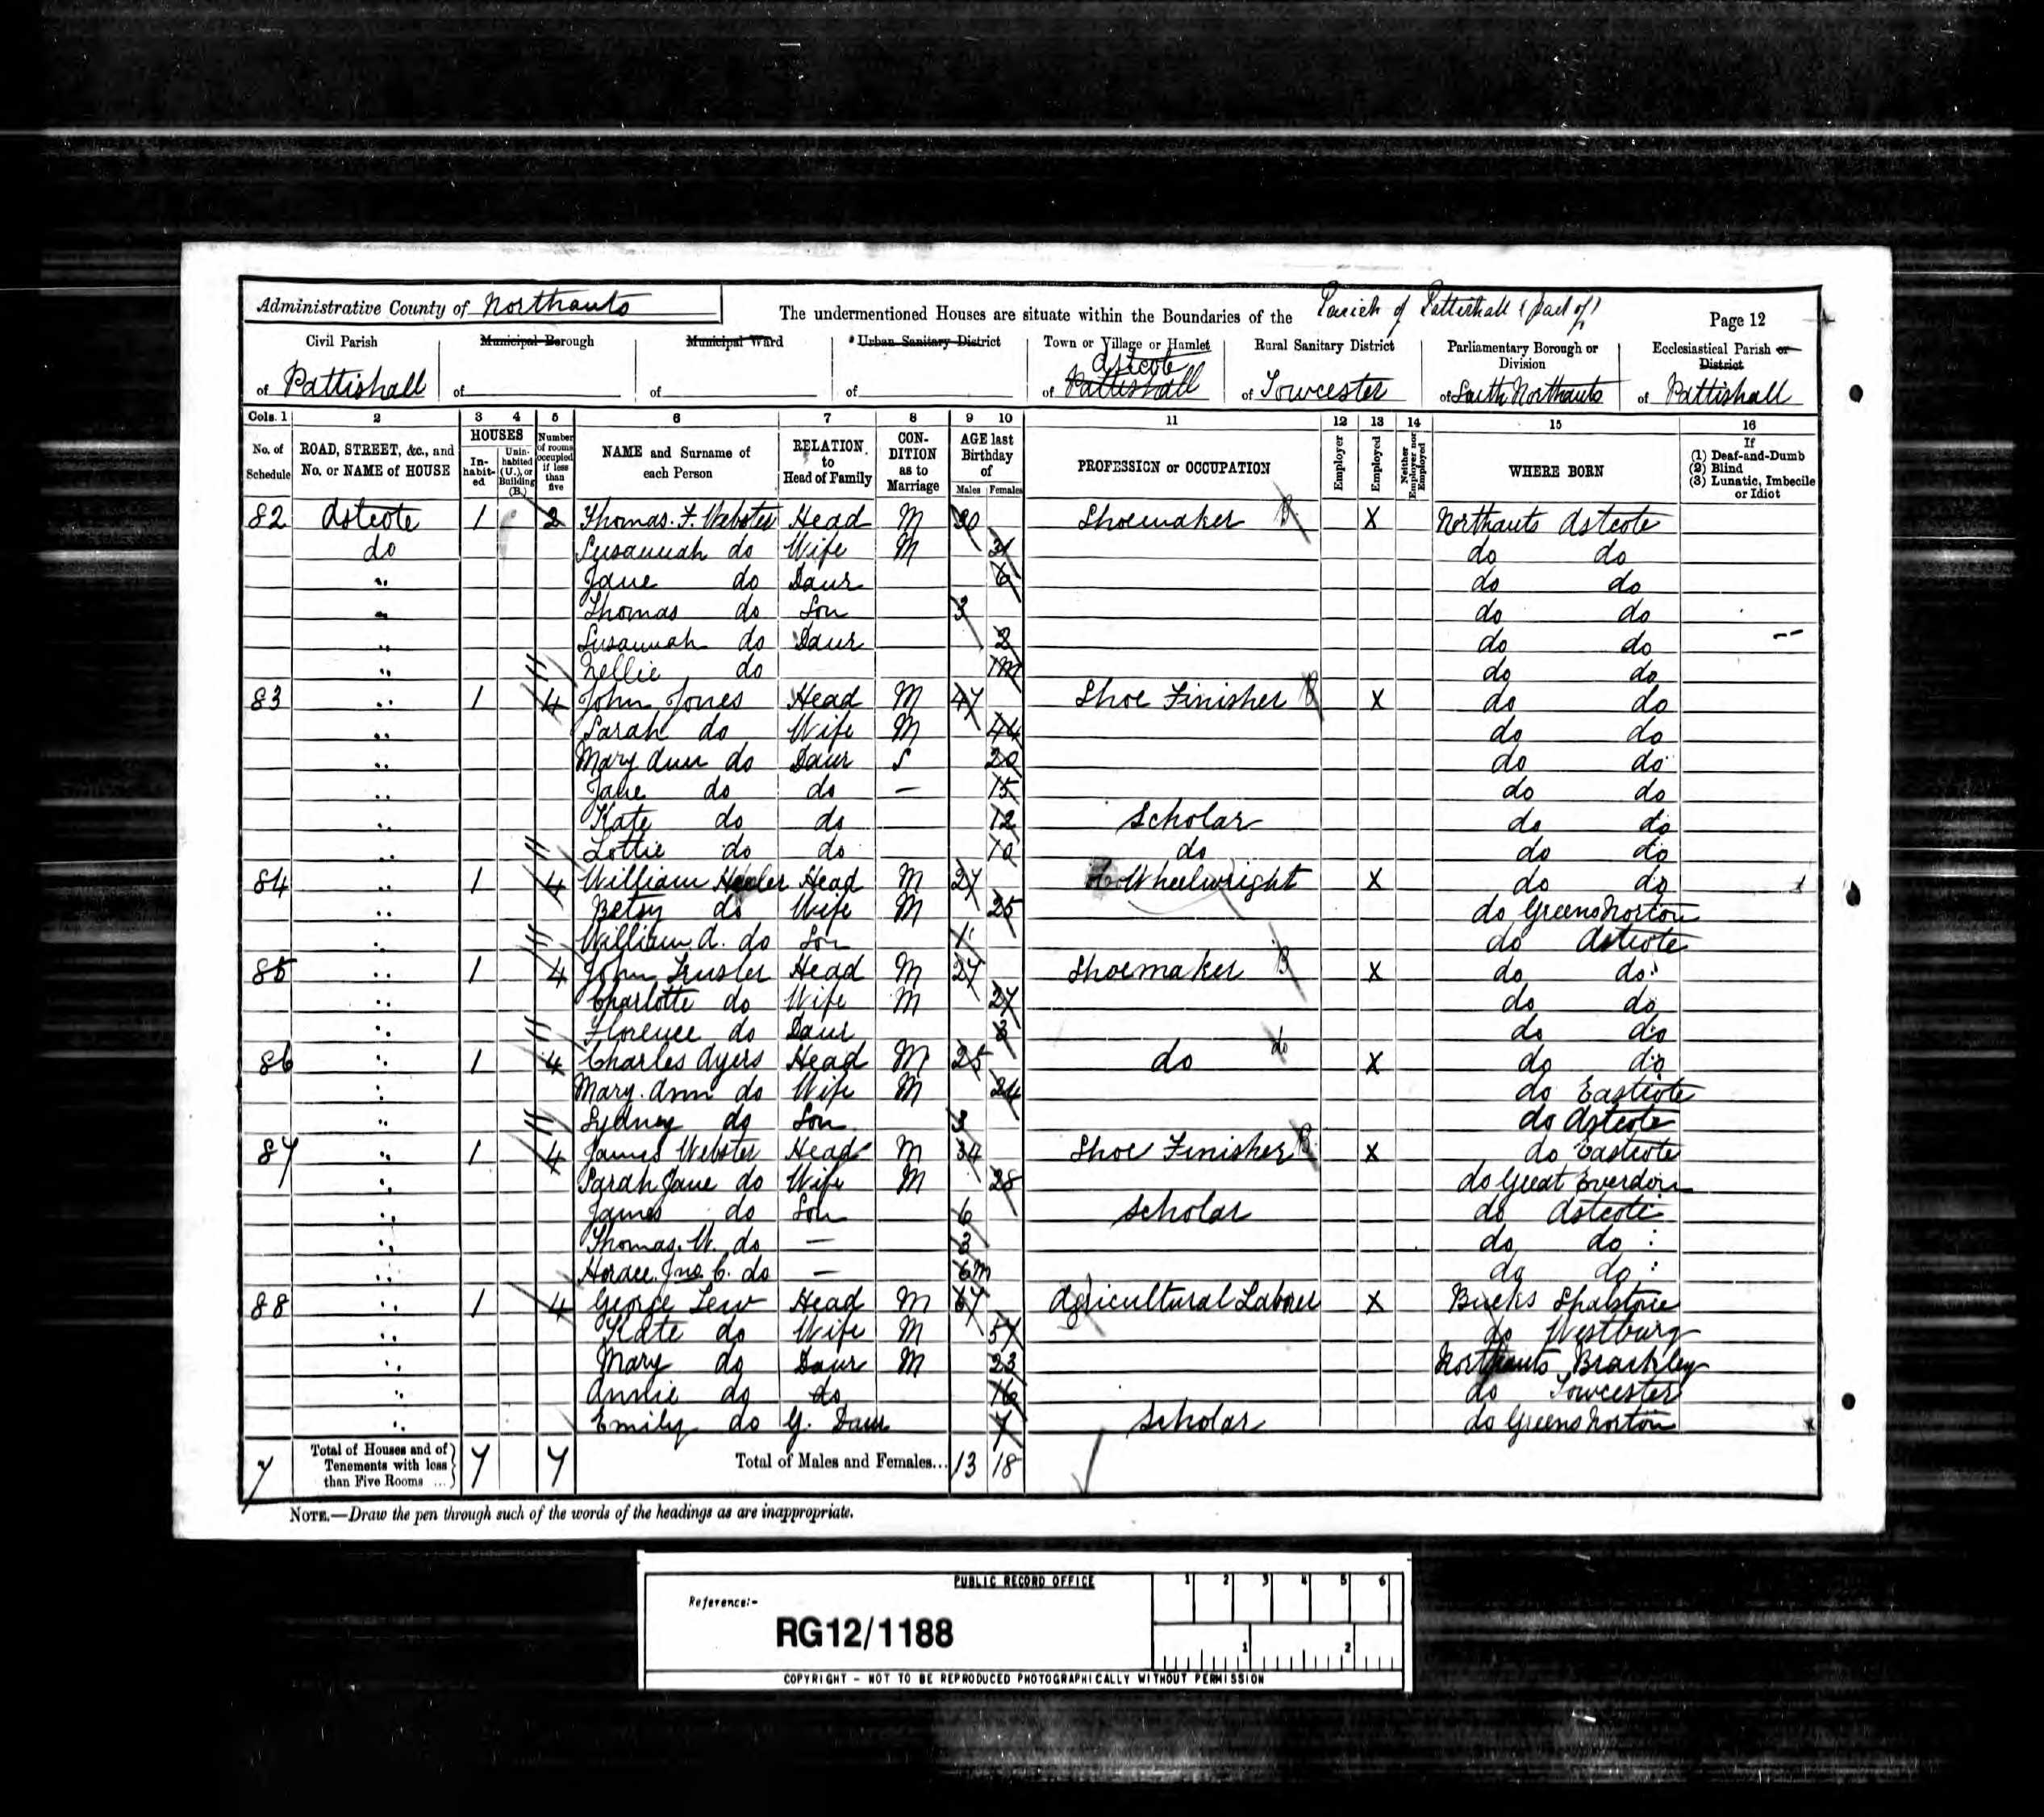 Administrative County of Northants
The undermentioned Houses are situate within the Boundaries of the Parish of Pattishall (part of)
Page 12
Civil Parish of Pattishall
Municipal Borough of
Municipal Ward of
Urban Sanitary District of
Town or Village or Hamlet of Pattishall Astcote
Rural Sanitary District of Towcester
Parliamentary Borough or Division of South Northants
Ecclesiastical Parish or District of Pattishall
Cols. 1 2 3 4 5 6 7 8 9 10 11 12 13 14 15 16
No. of Schedule
ROAD, STREET, &c., and No. or NAME of HOUSE
HOUSES
Inhabited
Uninhabited (U.), or Building (B.)
Number of rooms occupied if less than five
NAME and Surname of each Person
RELATION to Head of Family
CONDITION as to Marriage
AGE last Birthday of
Males Females
PROFESSION or OCCUPATION
Employer
Employed
Neither Employer nor Employed
WHERE BORN
If (1) Deaf-and-Dumb (2) Blind (3) Lunatic, Imbecile or Idiot
82 Astcote 1 2 Thomas. F. Webster Head M 30 Shoemaker B X Northants Astcote
do Susannah do Wife M 31 do do
" Jane do Daur 6 do do
" Thomas do Son 3 do do
" Susannah do Daur 2 do do
" Nellie do 1m do do
83 " 1 4 John Jones Head M 47 Shoe Finisher B X do do
" Sarah do Wife M 44 do do
" Mary Ann do Daur S 20 do do
" Jane do do — 15 do do
" Kate do do 12 Scholar do do
" Lottie do do 10 do do do
84 " 1 4 William Head M 27 Wheelwright X do do
" Betsy do Wife M 25 do Greens Norton
" William A. do Son 1 do Astcote
85 " 1 4 John Trusler Head M 27 Shoemaker B X do do
" Charlotte do Wife M 27 do do
" Florence do Daur 3 do do
86 " 1 4 Charles Ayers Head M 25 do do X do do
" Mary. Ann do Wife M 24 do Eastcote
" Sydney do Son 3 do Astcote
87 " 1 4 James Webster Head M 34 Shoe Finisher B X do Eastcote
" Sarah Jane do Wife M 28 do Great Everdon
" James do Son 6 Scholar do Astcote
" Thomas. W. do — 3 do do
" Horace. Jno. C. do — 6m do do
88 " 1 4 George Lew Head M 67 Agricultural Labourer X Bucks
" Kate do Wife M 57 do Westbury
" Mary do Daur M 23 Northants Brackley
" Annie do do 16 do Towcester
" Emily do G. Daur 7 Scholar do Greens Norton
7 Total of Houses and of Tenements with less than Five Rooms ... 7 7 Total of Males and Females... 13 18
NOTE.—Draw the pen through such of the words of the headings as are inappropriate.
PUBLIC RECORD OFFICE
1 2 3 4 5 6
Reference:-
RG12/1188
1 2
COPYRIGHT - NOT TO BE REPRODUCED PHOTOGRAPHICALLY WITHOUT PERMISSION